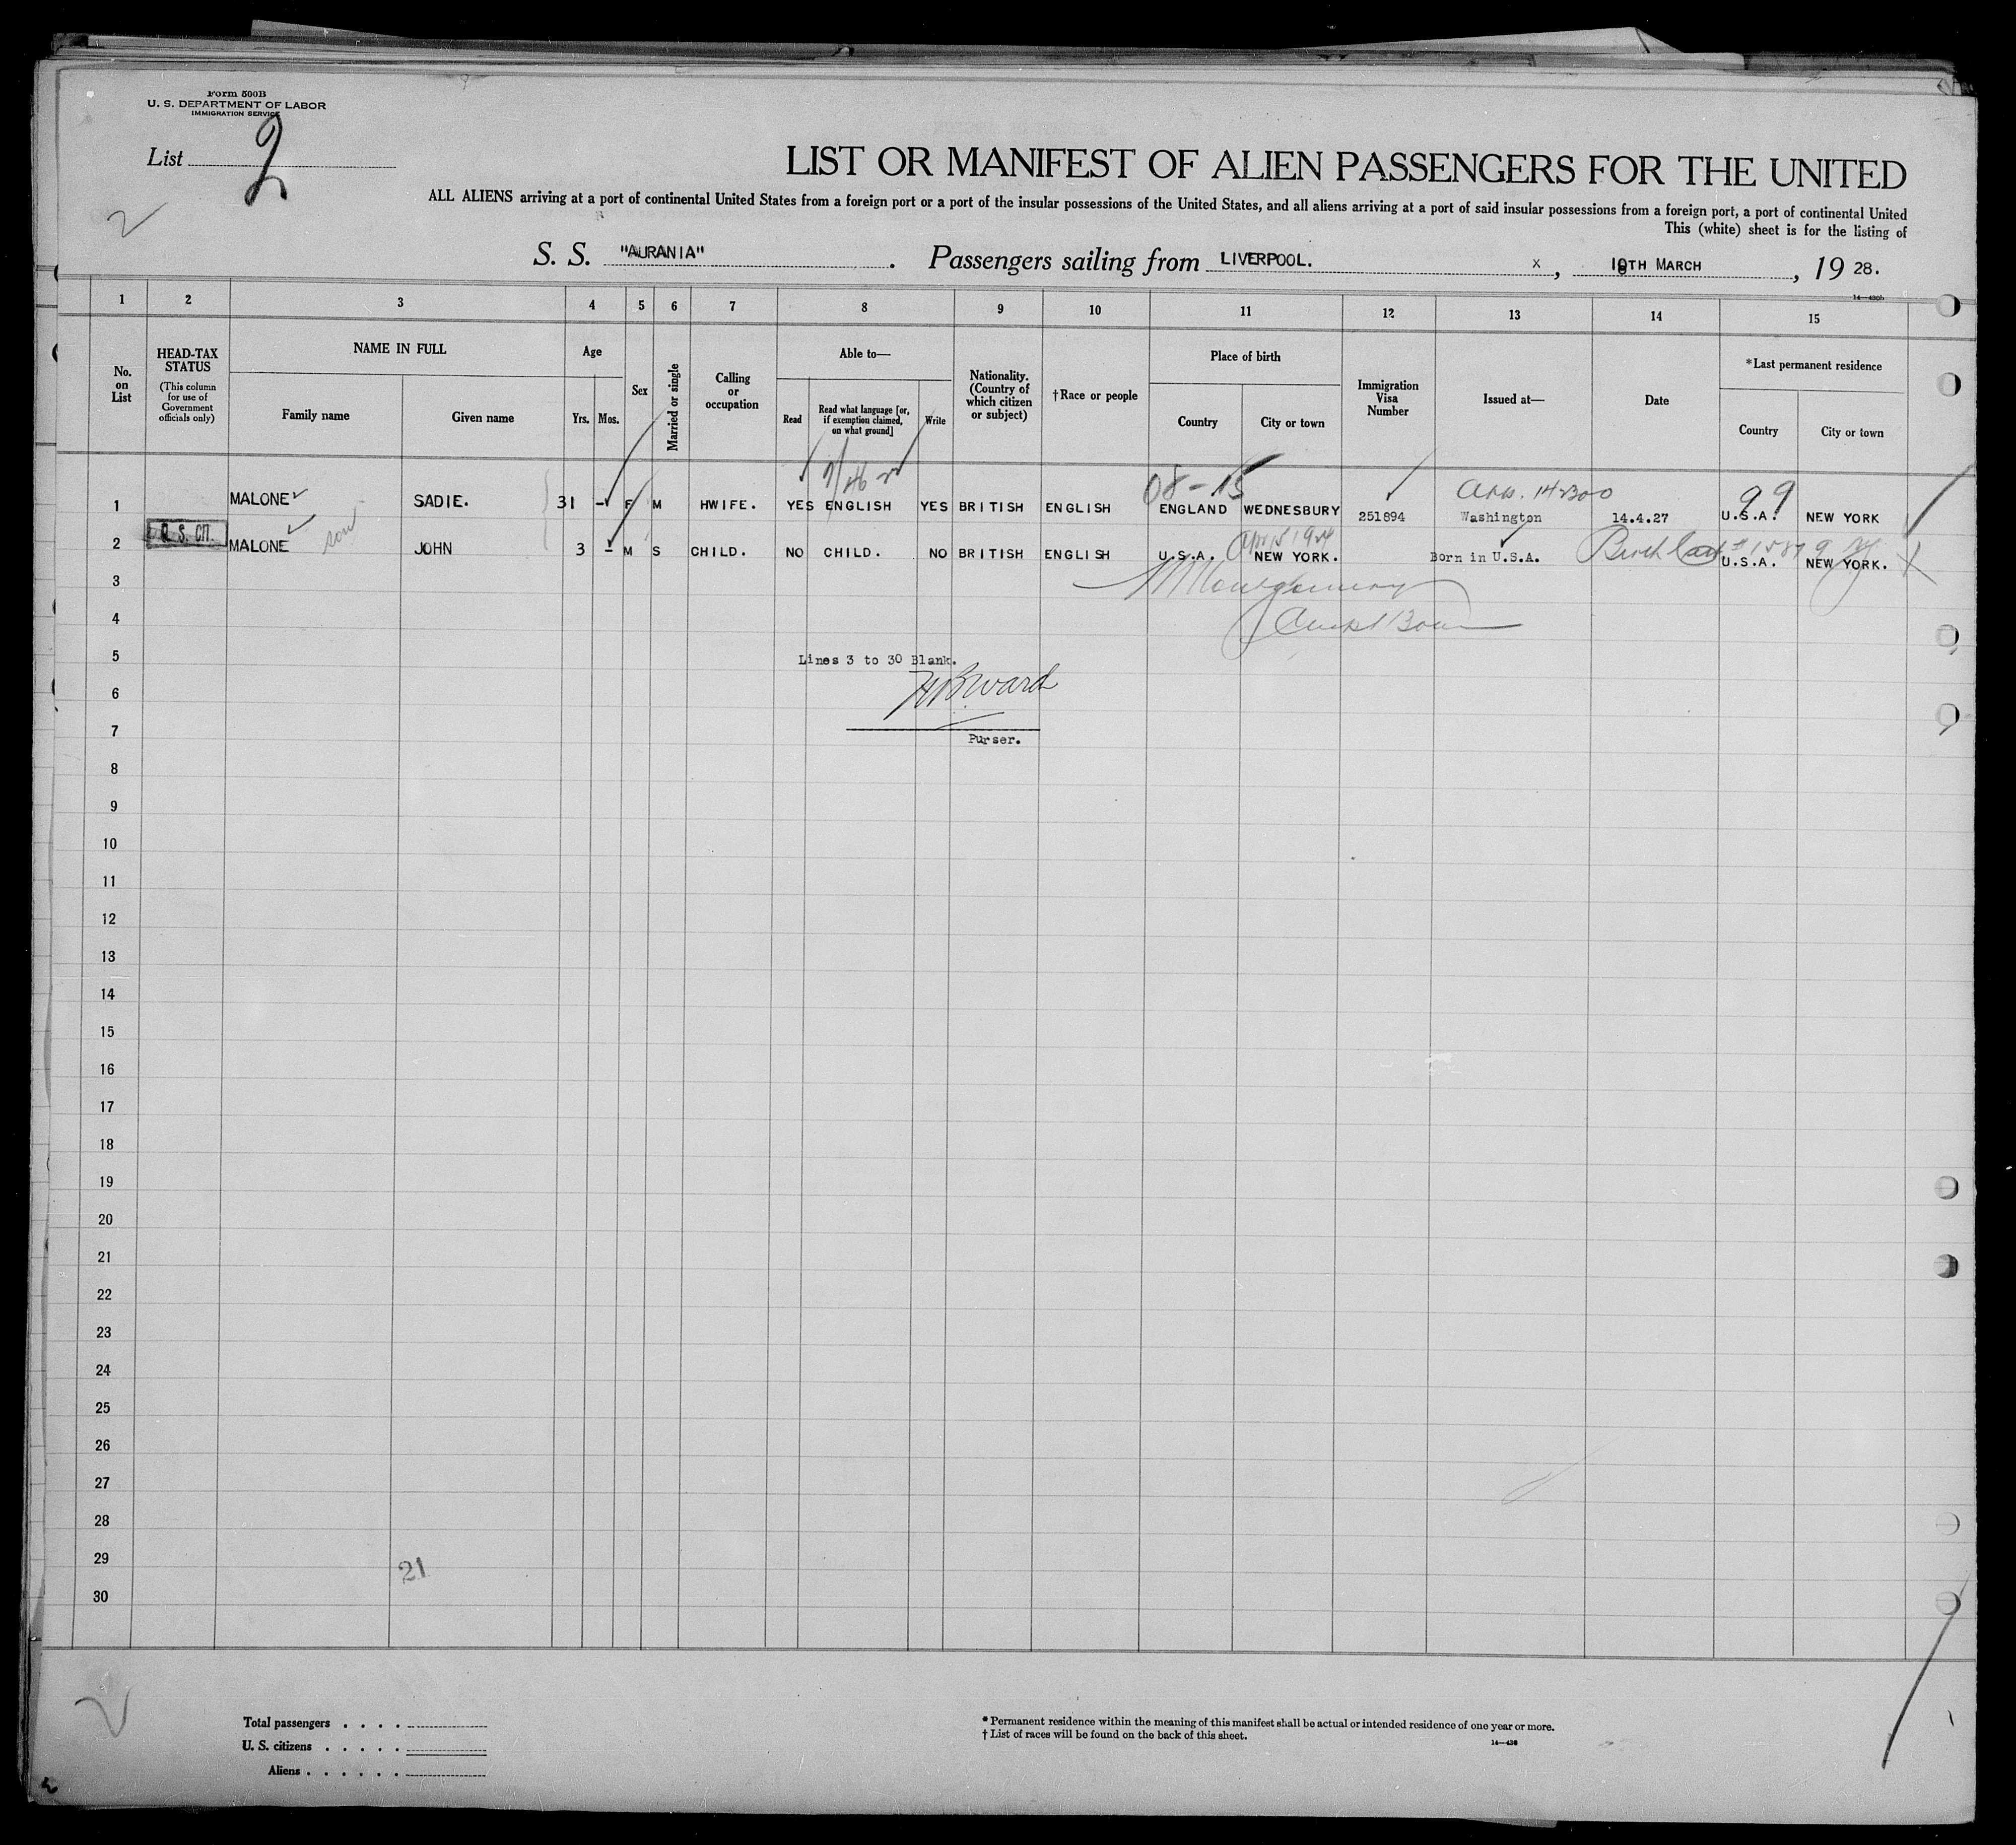 Form 500B
U. S. DEPARTMENT OF LABOR
IMMIGRATION SERVICE
List 2
2
LIST OR MANIFEST OF ALIEN PASSENGERS FOR THE UNITED
ALL ALIENS arriving at a port of continental United States from a foreign port or a port of the insular possessions of the United States, and all aliens arriving at a port of said insular possessions from a foreign port, a port of continental United
This (white) sheet is for the listing of
S. S. "AURANIA" . Passengers sailing from LIVERPOOL. x , TH MARCH , 19 28.
1 2 3 4 5 6 7 8 9 10 11 12 13 14 15
No. on List
HEAD-TAX STATUS
(This column for use of Government officials only)
NAME IN FULL
Family name
Given name
Age
Yrs.
Mos.
Sex
Married or single
Calling or occupation
Able to—
Read
Read what language [or, if exemption claimed, on what ground]
Write
Nationality. (Country of which citizen or subject)
†Race or people
Place of birth
Country
City or town
Immigration Visa Number
Issued at—
Date
*Last permanent residence
Country
City or town
08-15 99
1 MALONE SADIE. 31 - F M HWIFE. YES ENGLISH YES BRITISH ENGLISH ENGLAND WEDNESBURY 251894 Washington 14.4.27 U.S.A. NEW YORK
U. S. CIT. son
2 MALONE JOHN 3 - M S CHILD. NO CHILD. NO BRITISH ENGLISH U.S.A. NEW YORK. Born in U.S.A. U.S.A. NEW YORK.
3 Montgomery
4
5 Lines 3 to 30 Blank.
6 Ward
7
Purser.
8
9
10
11
12
13
14
15
16
17
18
19
20
21
22
23
24
25
26
27
28
29 21
30
Total passengers . . . .
U. S. citizens . . . . .
Aliens . . . . . .
* Permanent residence within the meaning of this manifest shall be actual or intended residence of one year or more.
† List of races will be found on the back of this sheet.